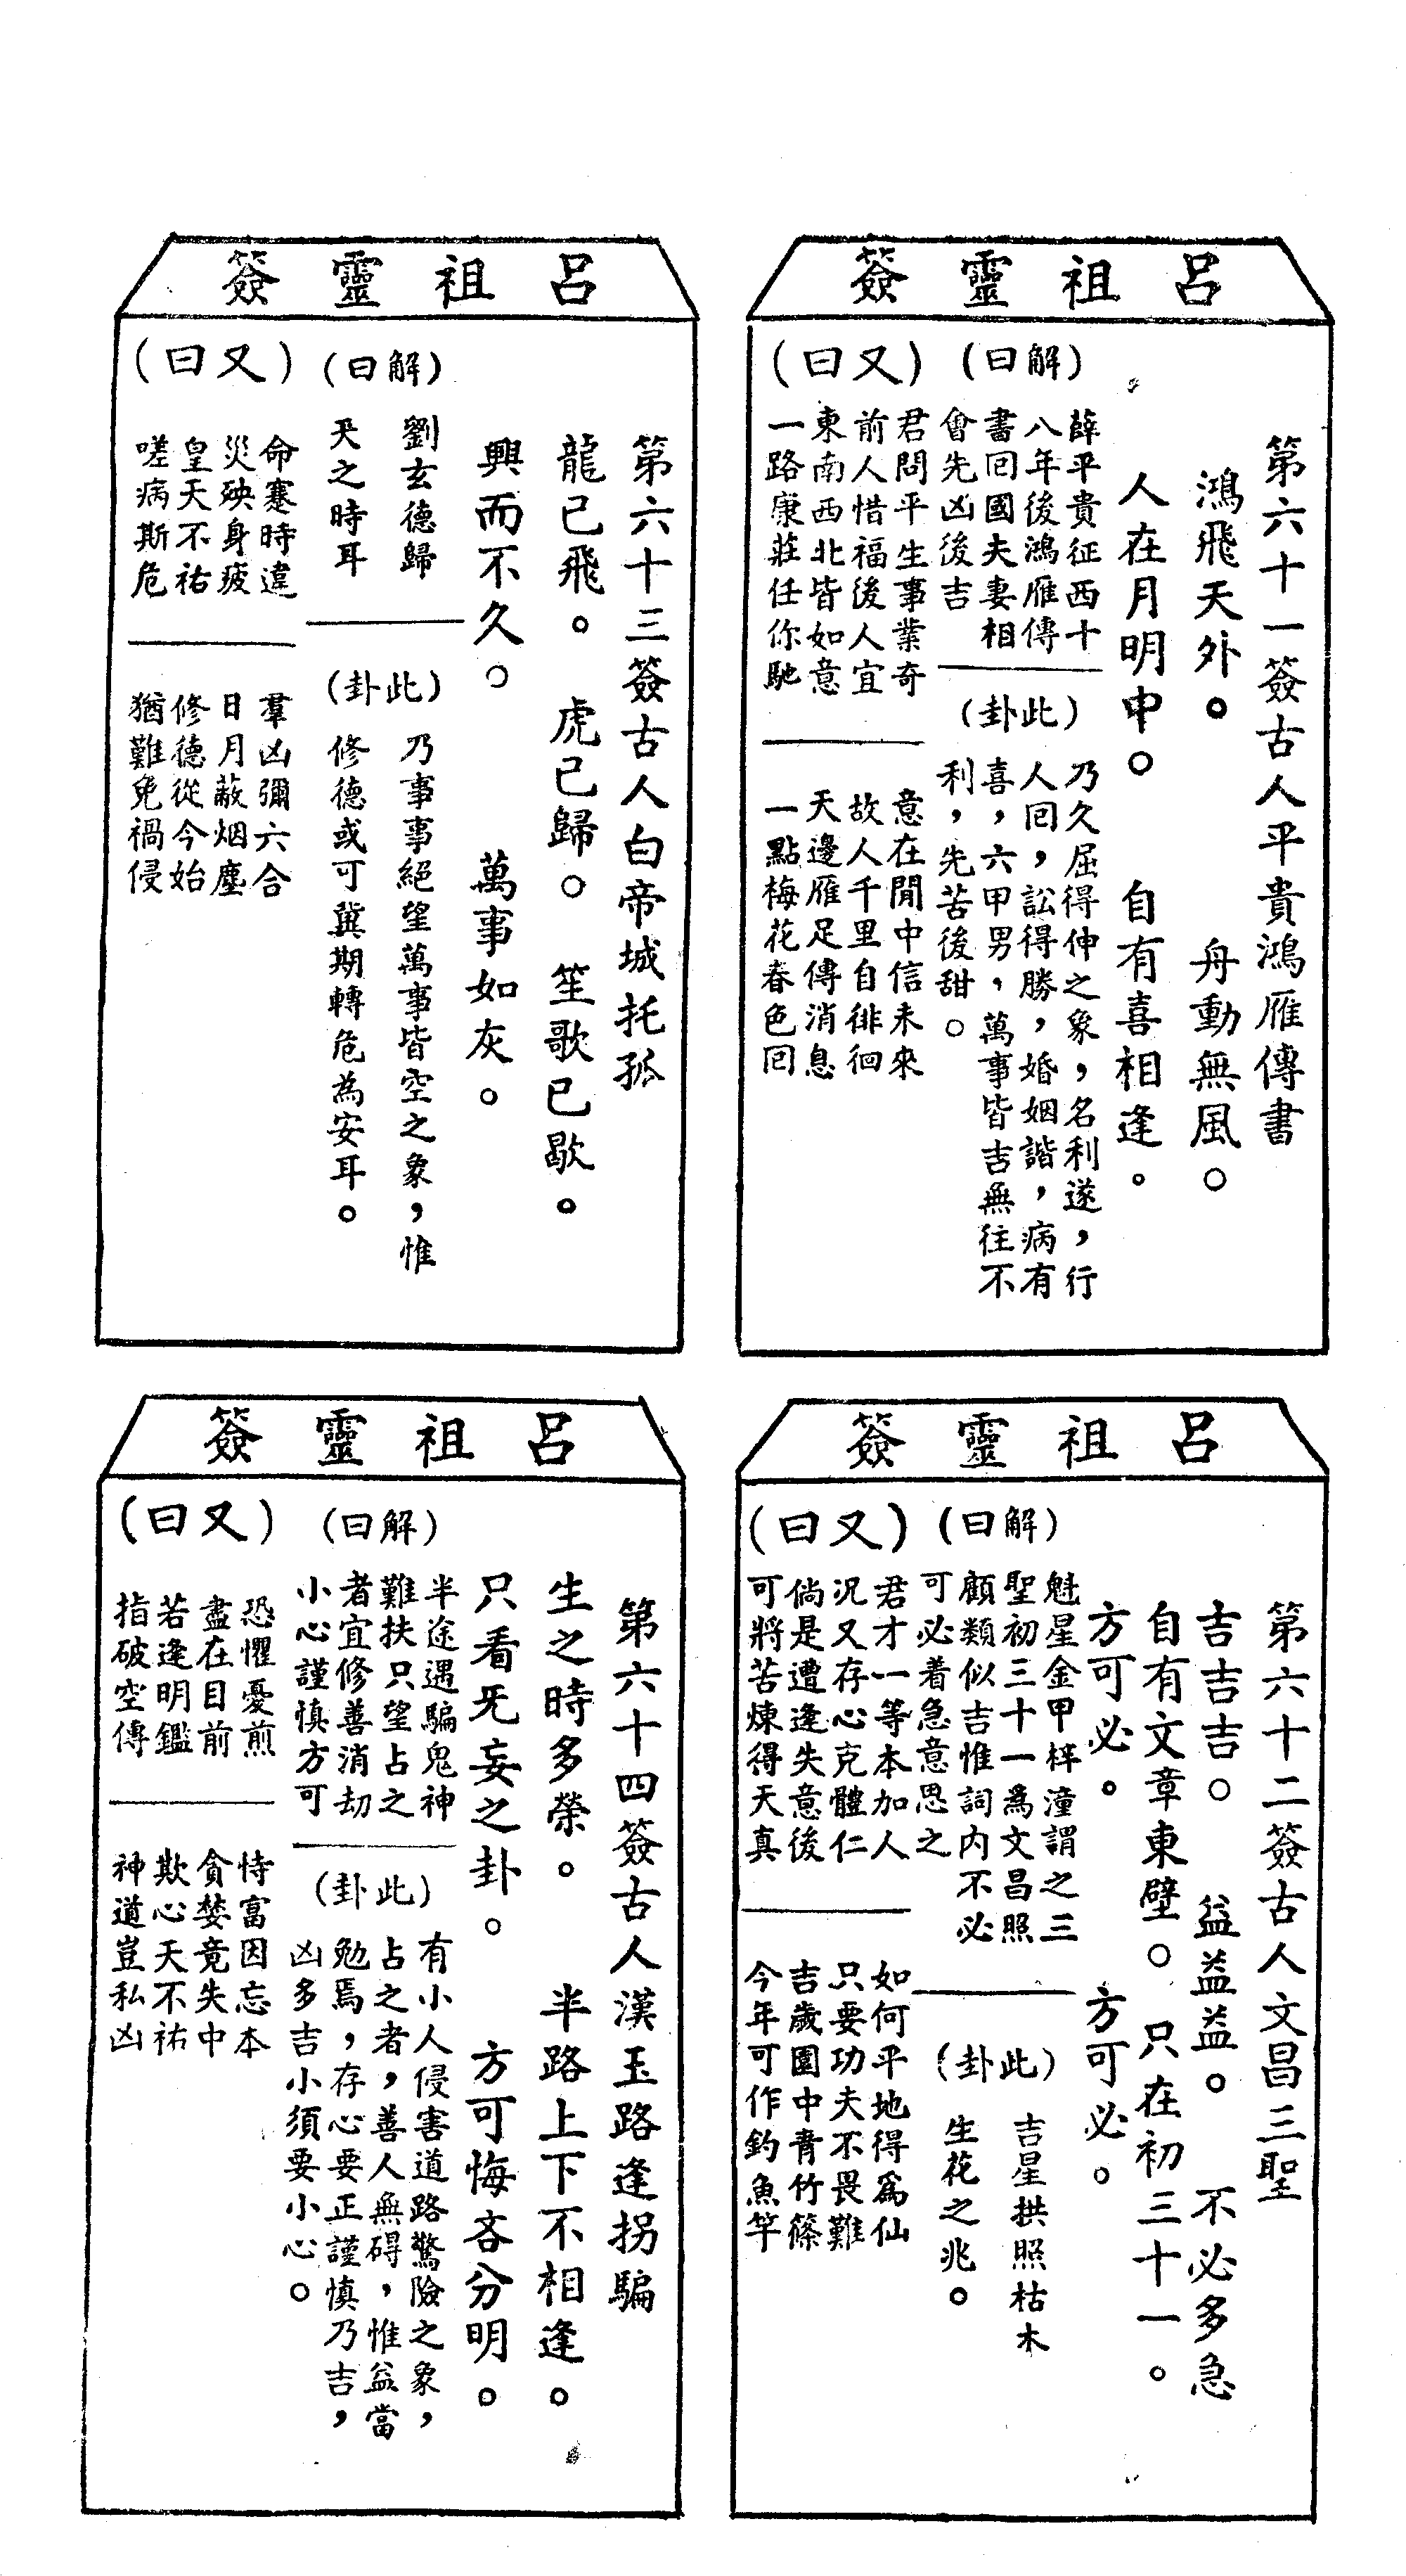 呂祖靈簽
第六十一簽古人平貴鴻雁傳書
鴻飛天外。 舟動無風。
人在月明中。 自有喜相逢。
(解曰)
薛平貴征西十
八年後鴻雁傳
書回國夫妻相
會先凶後吉
(此卦)
乃久屈得伸之象，名利遂，行
人回，訟得勝，婚姻諧，病有
喜，六甲男，萬事皆吉無往不
利，先苦後甜。
(又曰)
君問平生事業奇
前人惜福後人宜
東南西北皆如意
一路康莊任你馳
意在閒中信未來
故人千里自徘徊
天邊雁足傳消息
一點梅花春色回
呂祖靈簽
第六十二簽古人文昌三聖
吉吉吉。 益益益。 不必多急
自有文章東壁。 只在初三十一。
方可必。 方可必。
(解曰)
魁星金甲梓潼謂之三
聖初三十一為文昌照
顧類似吉惟詞内不必
可必着急意思之
(此卦)
吉星拱照枯木
生花之兆。
(又曰)
君才一等本加人
況又存心克體仁
倘是遭逢失意後
可將苦煉得天真
如何平地得爲仙
只要功夫不畏難
吉歲園中青竹篠
今年可作釣魚竿
呂祖靈簽
第六十三簽古人白帝城托孤
龍已飛。 虎已歸。 笙歌已歇。
興而不久。 萬事如灰。
(解曰)
劉玄德歸
天之時耳
(此卦)
乃事事絕望萬事皆空之象，惟
修德或可冀期轉危為安耳。
(又曰)
命蹇時違
災殃身疲
皇天不祐
嗟病斯危
羣凶彌六合
日月蔽烟塵
修德從今始
猶難免禍侵
呂祖靈簽
第六十四簽古人漢玉路逢拐騙
生之時多榮。 半路上下不相逢。
只看旡妄之卦。 方可悔吝分明。
(解曰)
半途遇騙鬼神
難扶只望占之
者宜修善消劫
小心謹慎方可
(此卦)
有小人侵害道路驚險之象，
占之者，善人無碍，惟益當
勉焉，存心要正謹慎乃吉，
凶多吉小須要小心。
(又曰)
恐懼憂煎
盡在目前
若逢明鑑
指破空傳
恃富因忘本
貪婪竟失中
欺心天不祐
神道豈私凶